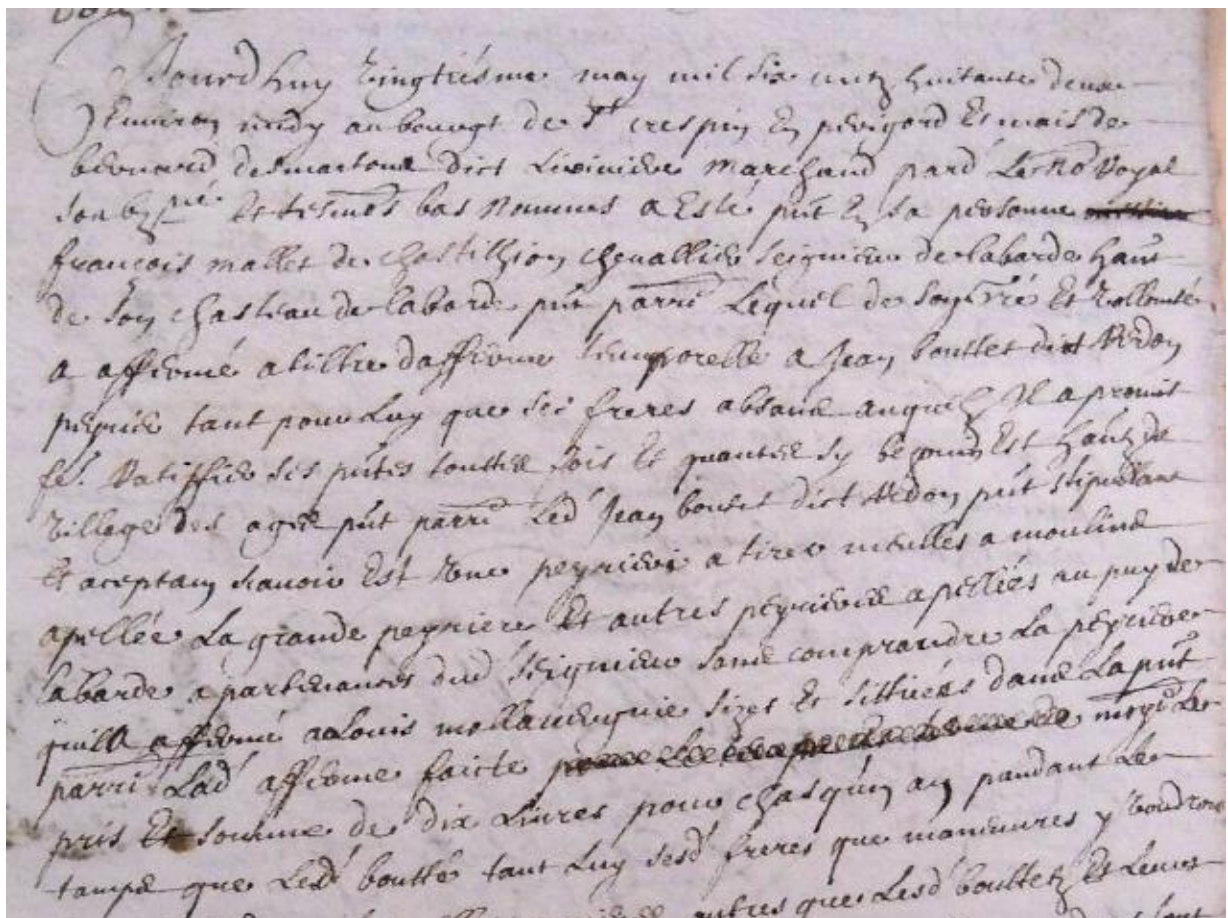 Jourd huy vingtiesme may mil six cents huitante deux
Environ midy au bourgt de St crespin En perigord Et maiso de
bernard desmartons dict Liviniere Marchand pard Le No Royal
soubz né Et tesmos bas Nommes a Esté pnt En sa personne
françois mallet de chastilhion chevallier seignieur de labarde hant
de son chasteau de labarde pnt parre Lequel de son gré Et vollonté
a affermé a tiltre dafferme temporelle a Jean bouttet dict Ardon
peyrier tant pour Luy que ses freres absans auquelz Il a promis
fe. Ratiffier ses pntes touttes fois Et quantes sy bezouin Est hantz de
village des ages pnt parre Led Jean boutet dict Ardon pnt stipullant
Et aceptant scavoir Est Une peyriere a tirer meulles a moulins
apellée La grande peyriere Et autres peyrieres apellées au puy de
labarde apartenances dud seignieur sans comprandre La peyriere
quil a affermé a Louis sizes Et sittuées dans La pnt
parre Lad afferme faicte moyt Le
pris Et somme de dix Livres pour chasqun an pandant Le
tamps que Lesd boutté tant Luy sesd freres que maneuvres y voudront
autres que Lesd bouttetz Et Leurs